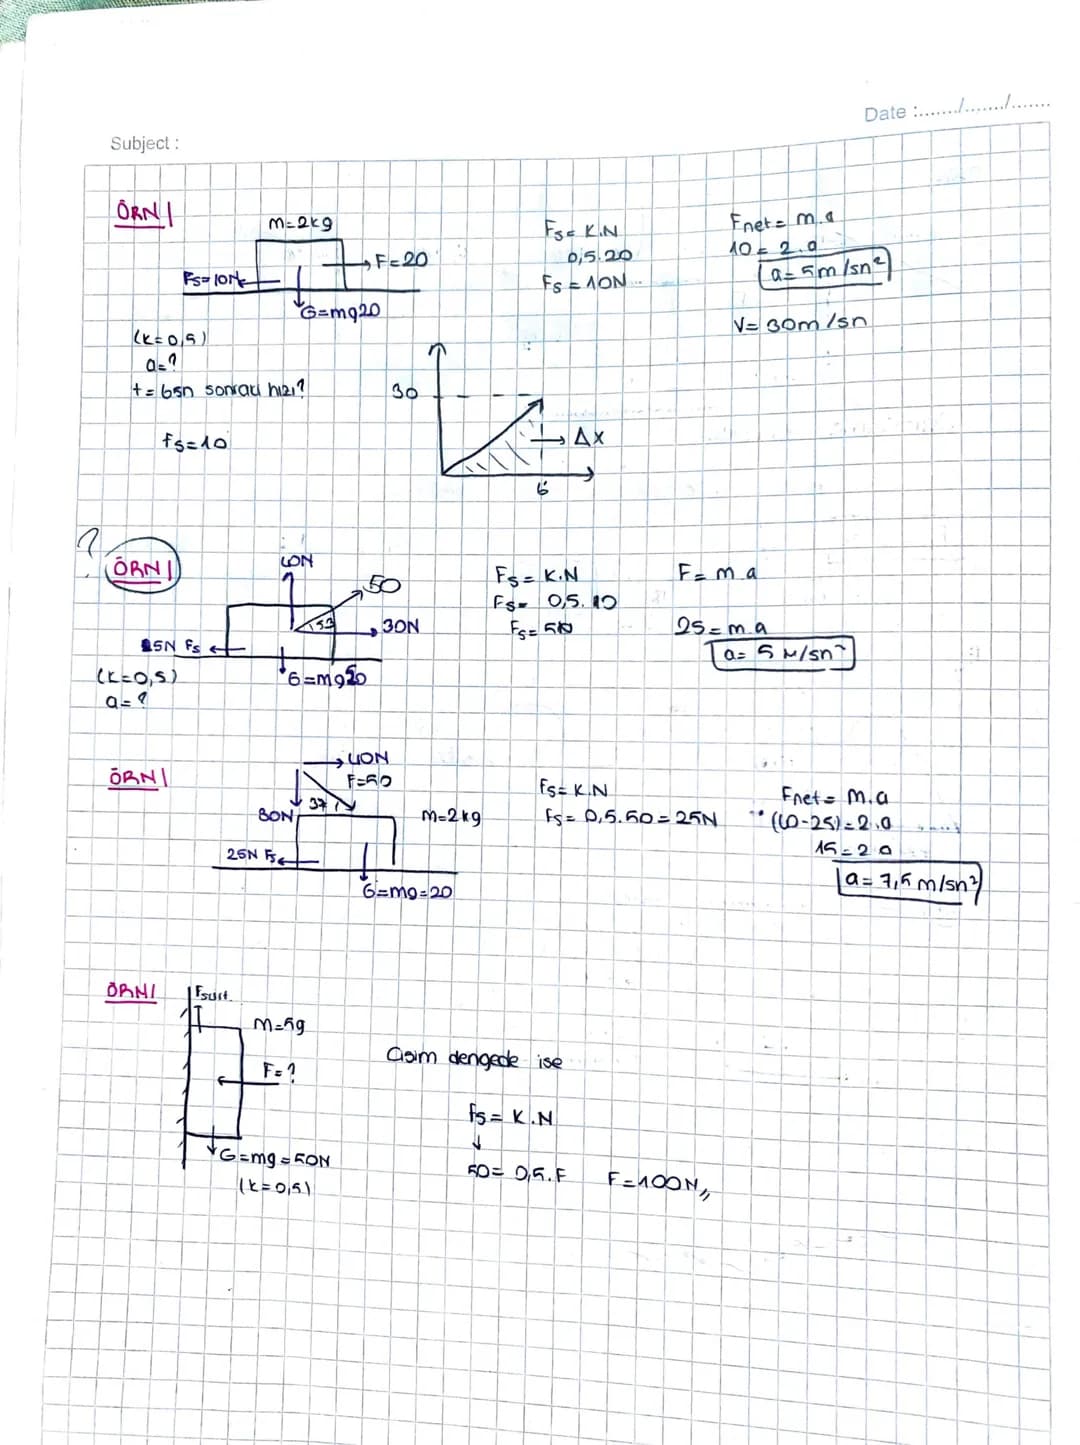 Date :......../......../........
Subject :
ÖRN|
m=2kg
F=20
Fs=10N
G=mg20
(k=0,5)
a=?
t=6sn sonraki hızı?
fs=10
Fs= K.N
0,5.20
Fs = 10N
Fnet= m.a
10 = 2.a
a= 5m/sn²
V= 30m/sn
30
Δx
6
?
ÖRN|
40N
50
53
30N
5N Fs
G=mg50
(k=0,5)
a=?
Fs= K.N
Fs= 0,5.10
Fs= 5N
F= m a
25=m.a
a= 5 m/sn²
ÖRN|
40N
F=50
37
30N
m=2kg
25N Fs
G=mg=20
Fs= K.N
Fs= 0,5.50=25N
Fnet= m.a
(40-25)=2.a
15=2a
a= 7,5 m/sn²
ÖRN|
Fsürt.
m=5g
F=?
G=mg=50N
(k=0,5)
Cisim dengede ise
fs= K.N
↓
50= 0,5.F F=100N,,